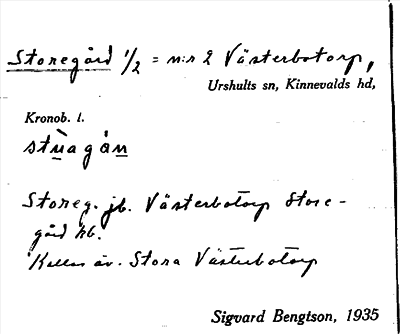 Storegård 1/2 = n:r 2 Västerbotorp,
Urshults sn, Kinnevalds hd,
Kronob. l.
stùagån
Storeg. jb. Västerbotorp Store-
gård kb.
Kallas äv. Stora Västerbotorp
Sigvard Bengtson, 1935